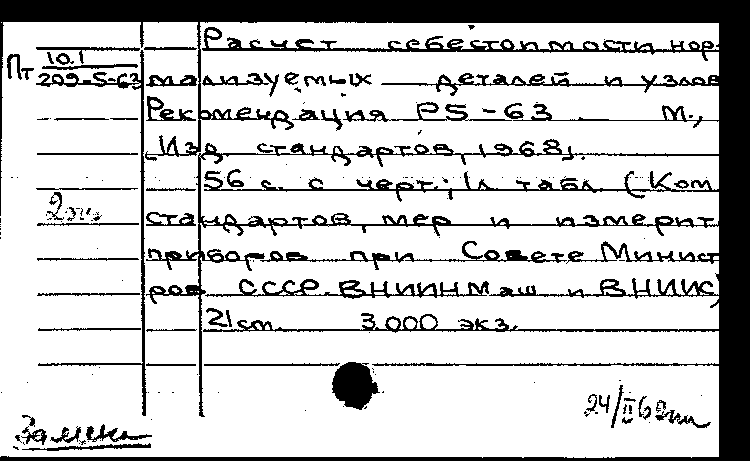 Расчет себестоимости нор-
Пт 10.1
209-5-63
мализуемых деталей и узлов
Рекомендация Р5-63 М.,
[Изд. стандартов, 1968].
56 с. с черт.; 1 л. табл. (Ком.
2 эк.
стандартов, мер и измерит.
приборов при Совете Минист-
ров СССР. ВНИИНМаш и ВНИИК)
21 см. 3.000 экз.
24/II 68